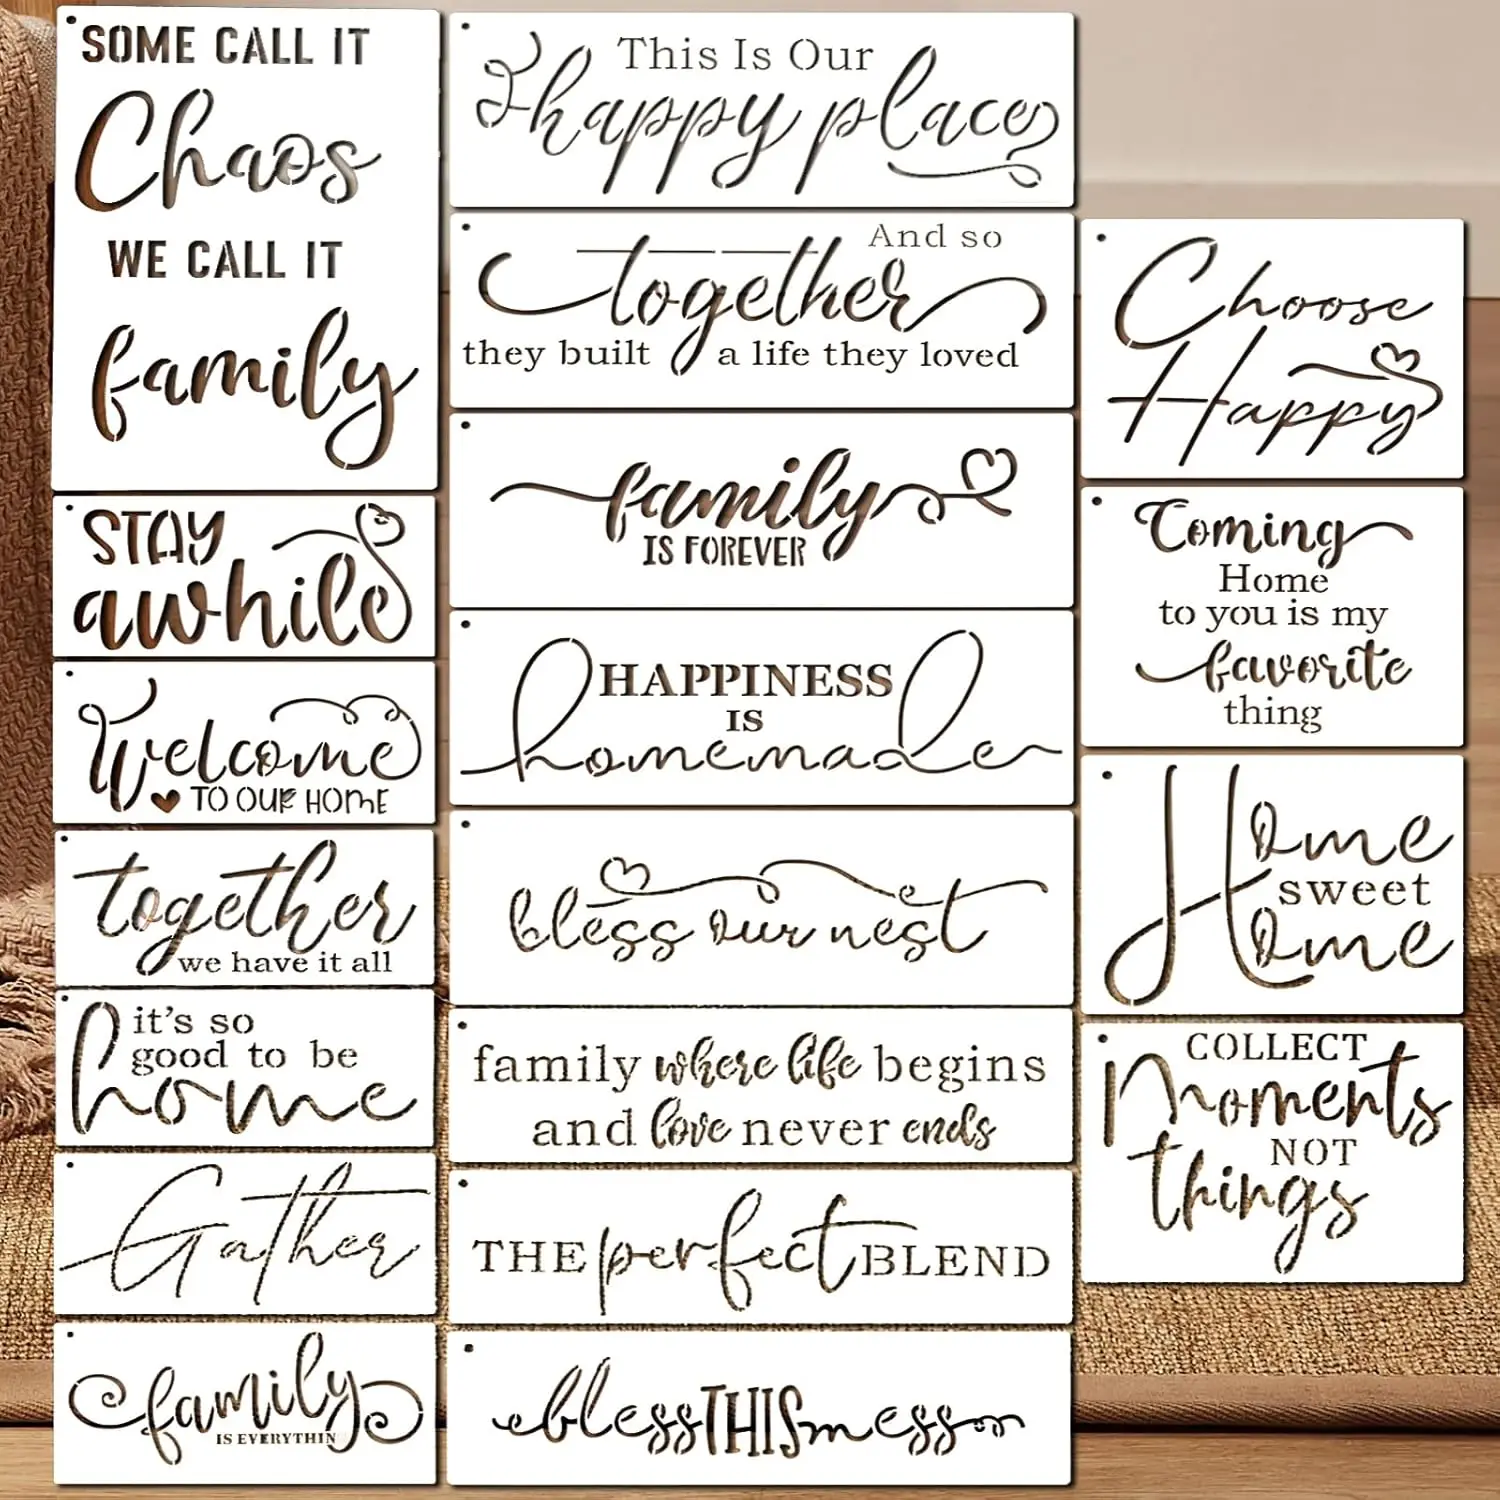 SOME CALL IT
Chaos
WE CALL IT
family
STAY
awhile
Welcome
TO OUR HOME
together
we have it all
it's so
good to be
home
Gather
family
IS EVERYTHIN
This Is Our
happy place
And so
together
they built a life they loved
family
IS FOREVER
HAPPINESS
IS
homemade
bless our nest
family where life begins
and love never ends
THE perfect BLEND
bless THIS mess
Choose
Happy
Coming
Home
to you is my
favorite
thing
Home
sweet
Home
COLLECT
Moments
NOT
things